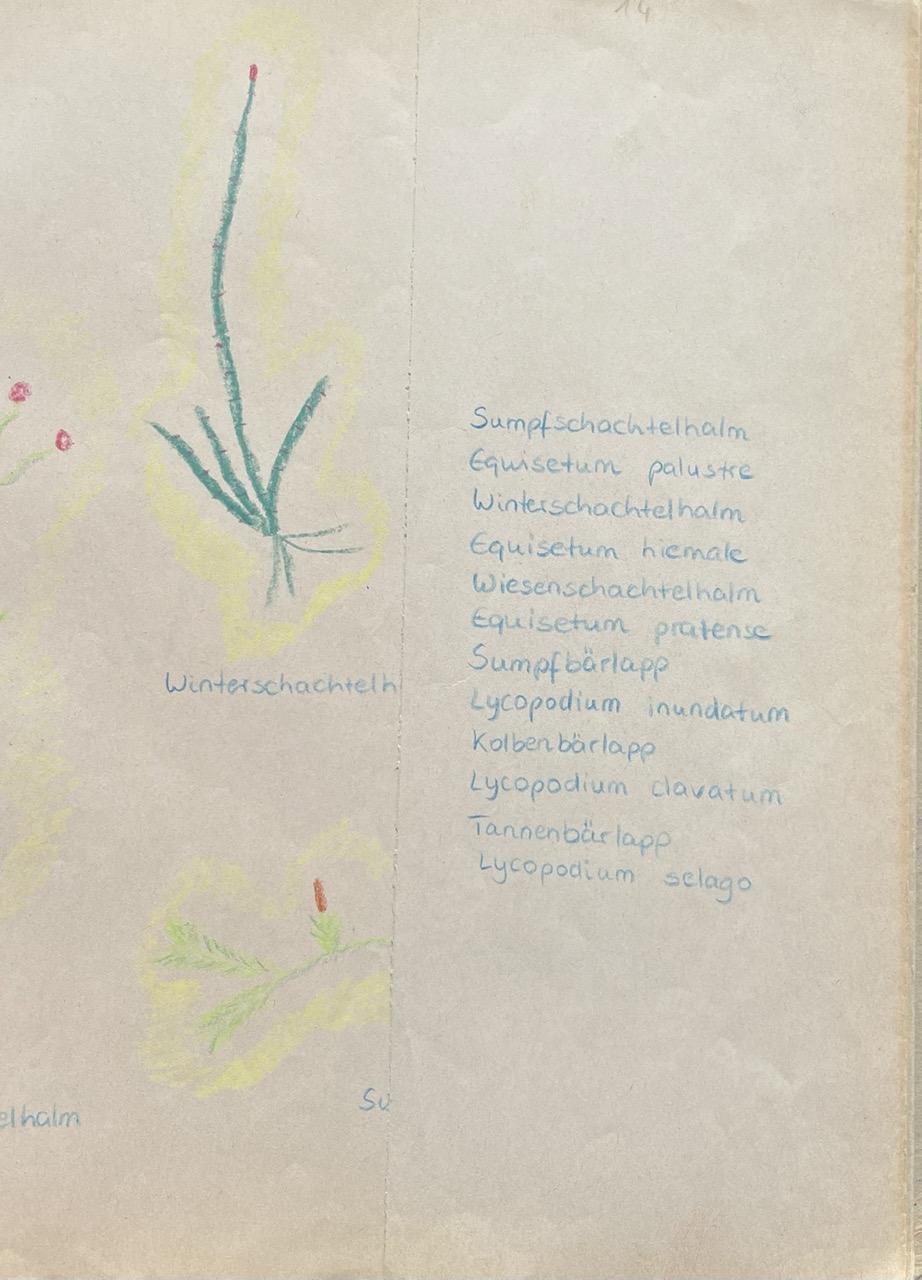 14
Winterschachtelh
elhalm
Su
Sumpfschachtelhalm
Equisetum palustre
Winterschachtelhalm
Equisetum hiemale
Wiesenschachtelhalm
Equisetum pratense
Sumpfbärlapp
Lycopodium inundatum
Kolbenbärlapp
Lycopodium clavatum
Tannenbärlapp
Lycopodium selago